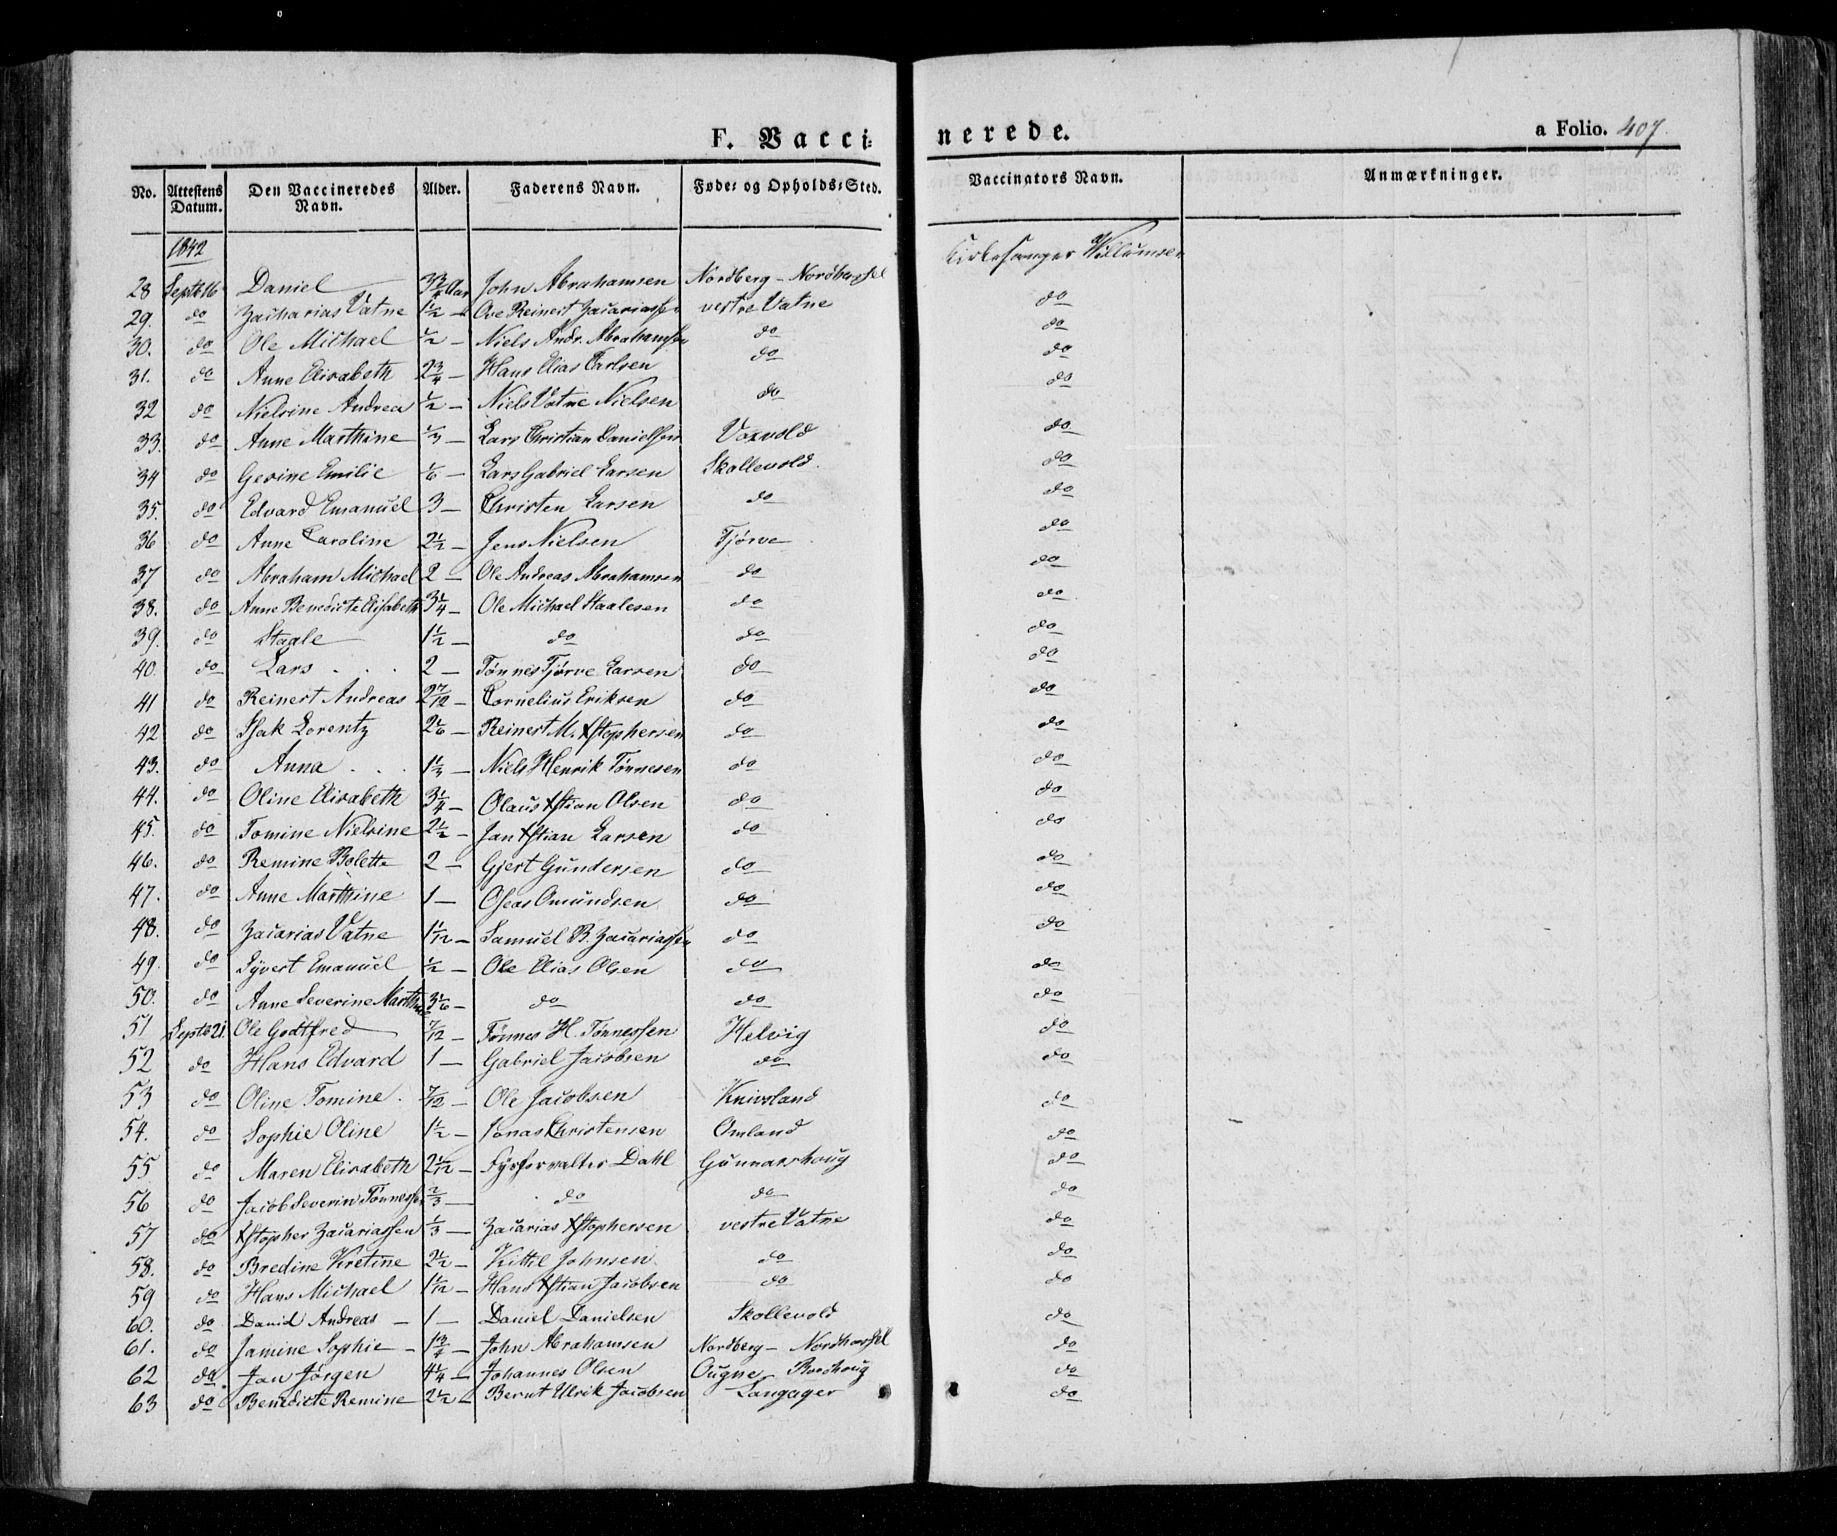 F. Vacci- nerede. a Folio. 407.
No. Attestens Datum. Den Vaccineredes Navn. Alder. Faderens Navn. Føde- og Opholds-Sted. Vaccinators Navn. Anmærkninger.
1842
28 Septb 16 Daniel 3 3/4 Aar John Abrahamsen Nordberg - Nordhassel Kirkesanger Willumsen
29. do Zacharias Vatne 1 1/2 - Ove Reinert Zacariassen vestre Vatne do
30. do Ole Michael 1/2 - Niels Andr. Abrahamsen do do
31. do Anne Elisabeth 2 3/4 - Hans Elias Carlsen do do
32 do Nielsine Andrea 1/2 - Niels Vatne Nielsen do do
33. do Anne Marthine 1/3 - Lars Christian Danielsen Vaxvold do
34 do Gesine Emilie 1/6 - Lars Gabriel Larsen Skollevold. do
35. do Edvard Emanuel 3 - Christen Larsen do do
36 do Anne Caroline 2 1/2 - Jens Nielsen Tjørve do
37 do Abraham Michael 2 - Ole Andreas Abrahamsen do do
38. do Anne Benedicte Elisabeth 3 1/4 - Ole Michael Staalesen do do
39. do Staale 1 1/2 - do do do
40. do Lars 2 - Tønnes Tjørve Larsen do do
41 do Reinert Andreas 2 7/12 - Cornelius Eriksen do do
42 do Isak Lorentz 2 1/6 - Reinert M. Xstophersen do do
43. do Anna 1 1/3 - Niels Henrik Tønnesen do do
44. do Oline Elisabeth 3 1/4 - Olaus Xstian Olsen do do
45. do Tomine Nielsine 2 1/2 - Jan Xstian Larsen do do
46. do Remine Bolette 2 - Gjert Gundersen do do
47. do Anne Marthine 1 - Oseas Omundsen do do
48. do Zacarias Vatne 1 1/12 - Samuel B. Zacariassen do do
49. do Syvert Emanuel 1/2 - Ole Elias Olsen do do
50. do Anne Severine Marthine 3 1/6 - do do do
51 Septb 21. Ole Godtfred 7/12 - Tønnes H. Tønnessen Helvig do
52 do Hans Edvard 1 - Gabriel Jacobsen do do
53 do Oline Tomine. 7/12 - Ole Jacobsen Knivsland do
54. do Sophie Oline 1 1/2 - Jonas Christensen Omland do
55 do Maren Elisabeth 2 1/12 - Fyrforvalter Dahl Gunnarshoug do
56 do Jacob Severin Tønnessen 2/3 - do do do
57 do Xstopher Zacariassen 1/3 - Zacarias Xstophersen vestre Vatne do
58. do Bredine Kistine 2 1/2 - Kittil Johnsen do do
59 do Hans Michael 1 1/12 - Hans Xstian Jacobsen do do
60. do David Andreas - 1 - Daniel Danielsen Skollevold do
61. do Jamine Sophie - 1 3/4 - John Abrahamsen Nordberg - Nordhassel do
62 do Jan Jørgen 4 1/4 - Johannes Olsen Ougne, do
63 do Benedicte Remine 2 1/2 - Bernt Ulrik Jacobsen Langager do